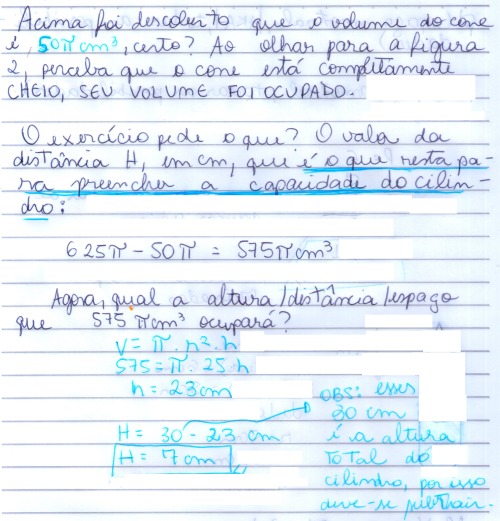 Acima foi descoberto que o volume do cone
é, 50π cm³, certo? Ao olhar para a figura
2, perceba que o cone está completamente
CHEIO, SEU VOLUME FOI OCUPADO.
O exercício pede o que? O valor da
distância H, em cm, que é o que resta pa-
ra preencher a capacidade do cilin-
dro:
625π - 50π = 575π cm³
Agora, qual a altura/distância/espaço
que 575 π cm³ ocupará?
V = π. r². h
575 = π. 25. h
h = 23 cm
H = 30 - 23 cm
H = 7 cm
OBS: esses
30 cm
é a altura
TOTAL do
cilindro, por isso
deve-se subtrair.